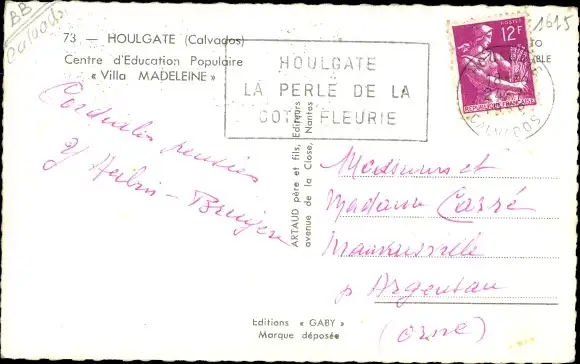 BB
Calvados
73 — HOULGATE (Calvados)
Centre d'Education Populaire
« Villa MADELEINE »
HOULGATE
LA PERLE DE LA
COTE FLEURIE
POSTES
12F
REPUBLIQUE FRANÇAISE
CALVADOS
1615
Cordiales pensées
ARTAUD père et fils, Editeurs
avenue de la Close, Nantes
Monsieur et
Madame Carré
p Argentan
(Orne)
Editions « GABY »
Marque déposée